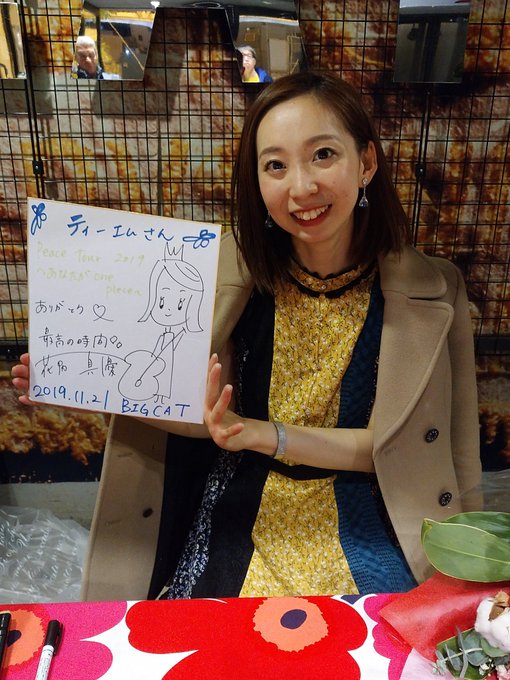 ティーエムさん
Peace Tour 2019
one
piece〜
ありがとう♡
最高の時間
2019.11.21 BIGCAT